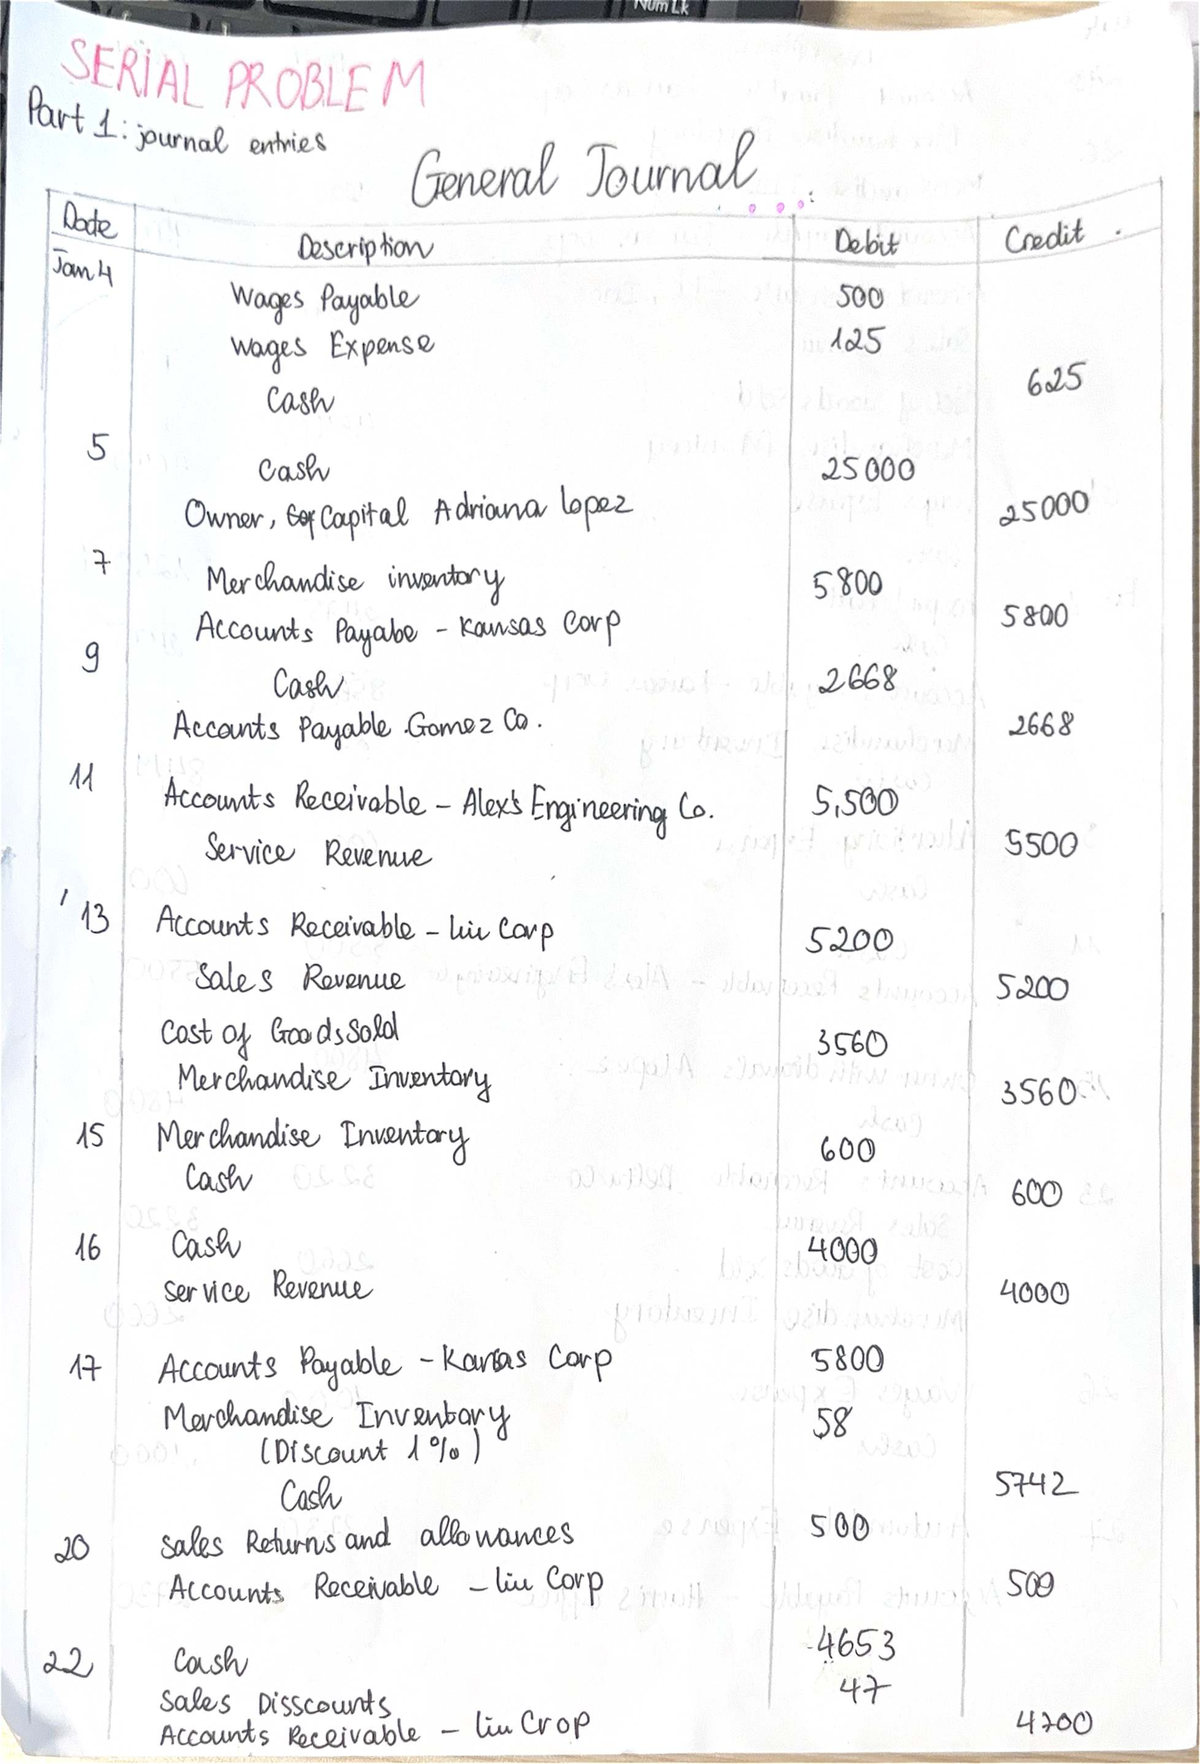 Num Lk
SERIAL PROBLEM
Part 1: journal entries
General Journal
Date Description Debit Credit
Jan 4
Wages Payable 500
Wages Expense 125
Cash 625
5 Cash 25000
Owner, Capital Adriana lopez 25000
7 Merchandise inventory 5800
Accounts Payabe - Kansas Corp 5800
9 Cash 2668
Accounts Payable Gomez Co. 2668
11 Accounts Receivable - Alex's Engineering Co. 5,500
Service Revenue 5500
13 Accounts Receivable - liu Corp 5200
Sales Revenue 5200
Cost of Goods Sold 3560
Merchandise Inventory 3560
15 Merchandise Inventory 600
Cash 600
16 Cash 4000
Service Revenue 4000
17 Accounts Payable - Kansas Corp 5800
Merchandise Inventory 58
(Discount 1%)
Cash 5742
20 Sales Returns and allowances 500
Accounts Receivable - liu Corp 500
22 Cash 4653
Sales Disscounts 47
Accounts Receivable - liu Crop 4700